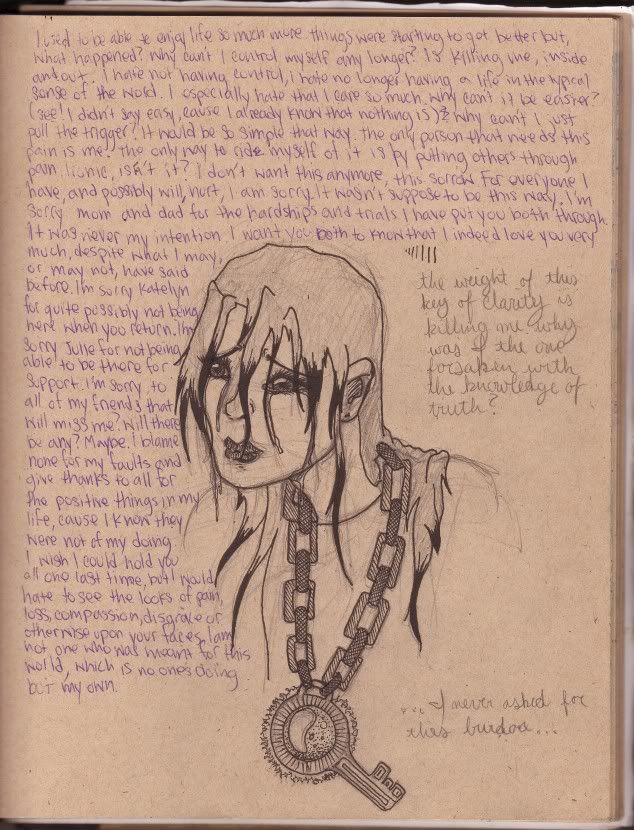 I used to be able to enjoy life so much more things were starting to get better but,
what happened? Why can't I control myself any longer? Is killing me, inside
and out. I hate not having control, i hate no longer having a life in the typical
sense of the world. I especially hate that I care so much. Why can't it be easier?
(see! I didn't say easy, cause I already know that nothing is)? Why can't I just
pull the trigger? It would be so simple that way. The only person that needs this
pain is me. The only way to ride myself of it is by putting others through
pain. Ironic, isn't it? I don't want this anymore, this sorrow. For everyone I
have, and possibly will, hurt, I am sorry. It wasn't suppose to be this way, I'm
sorry mom and dad for the hardships and trials I have put you both through.
It was never my intention. I want you both to know that I indeed love you very
much, despite what I may,
or may not, have said
before. I'm sorry Katelyn
for quite possibly not being
here when you return. I'm
sorry Julie for not being
able to be there for
support. I'm sorry, to
all of my friends that
will miss me? Will there
be any? Maybe. I blame
none for my faults and
give thanks to all for
the positive things in my
life, cause I know they
were not of my doing.
I wish I could hold you
all one last time, but I would
hate to see the looks of pain,
loss, compassion, disgrace or
otherwise upon your faces. I am
not one who was meant for this
world, which is no ones doing
but my own.
the weight of this
key of clarity is
killing me why
was I the one
forsaken with
the knowledge of
truth?
...I never asked for
this burdon...